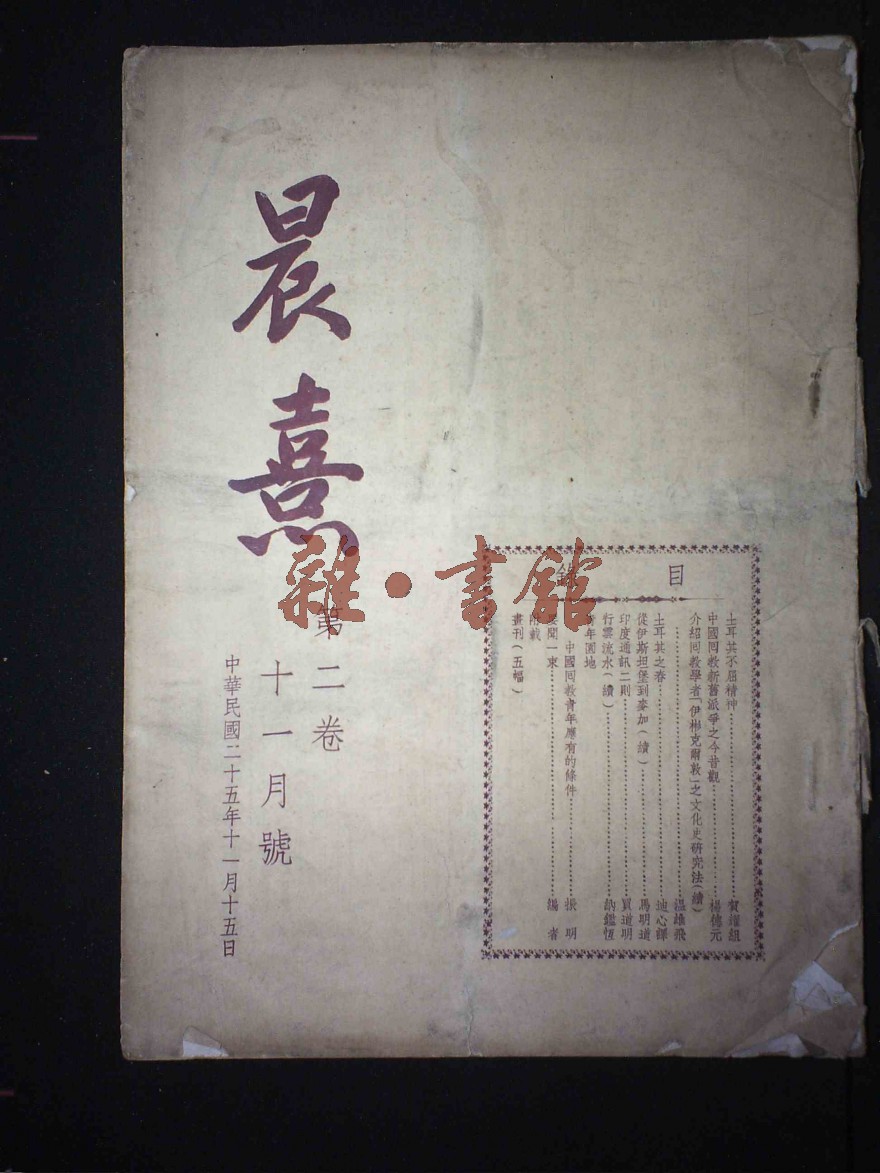 晨熹
第二卷
十一月號
中華民國二十五年十一月十五日
雜·書館
目錄
土耳其不屈精神……賀耀組
中國回教新舊派爭之今昔觀……楊德元
介紹回教學者「伊彬克爾敦」之文化史研究法(續)
……溫雄飛
土耳其之春……迪心譯
從伊斯坦堡到麥加(續)……馬明道
印度通訊二則……買道明
行雲流水(續)……納鑑恆
青年園地
中國回教青年應有的條件……振明
要聞一束……編者
附載
畫刊(五幅)